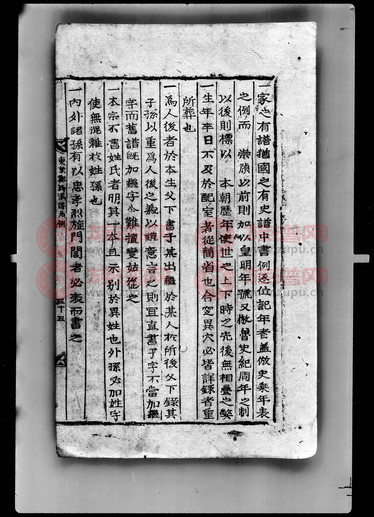 一家之有譜猶國之有史譜中書例逐位記年者蓋倣史乘年表
之例而 崇禎以前則加以皇明年號又倣魯史紀周年之制
以後則標以 本朝歷年使世之上下時之先後無相疊之獘
一生年卒日不及於配室者從簡省也合窆異穴必皆詳錄者重
所葬也
一爲人後者於本生父下書子某出繼於某人於所後父下錄其
子孫以重爲人後之義以繼意言之則宜直書子字不當加繼
字而舊譜旣加繼字今難擅變姑從之
一本宗不書姓氏者明其一本且示別於異姓也外孫必加姓字
使無混雜於姓孫也
一內外諸孫有以忠孝烈旌門閭者必表而書之